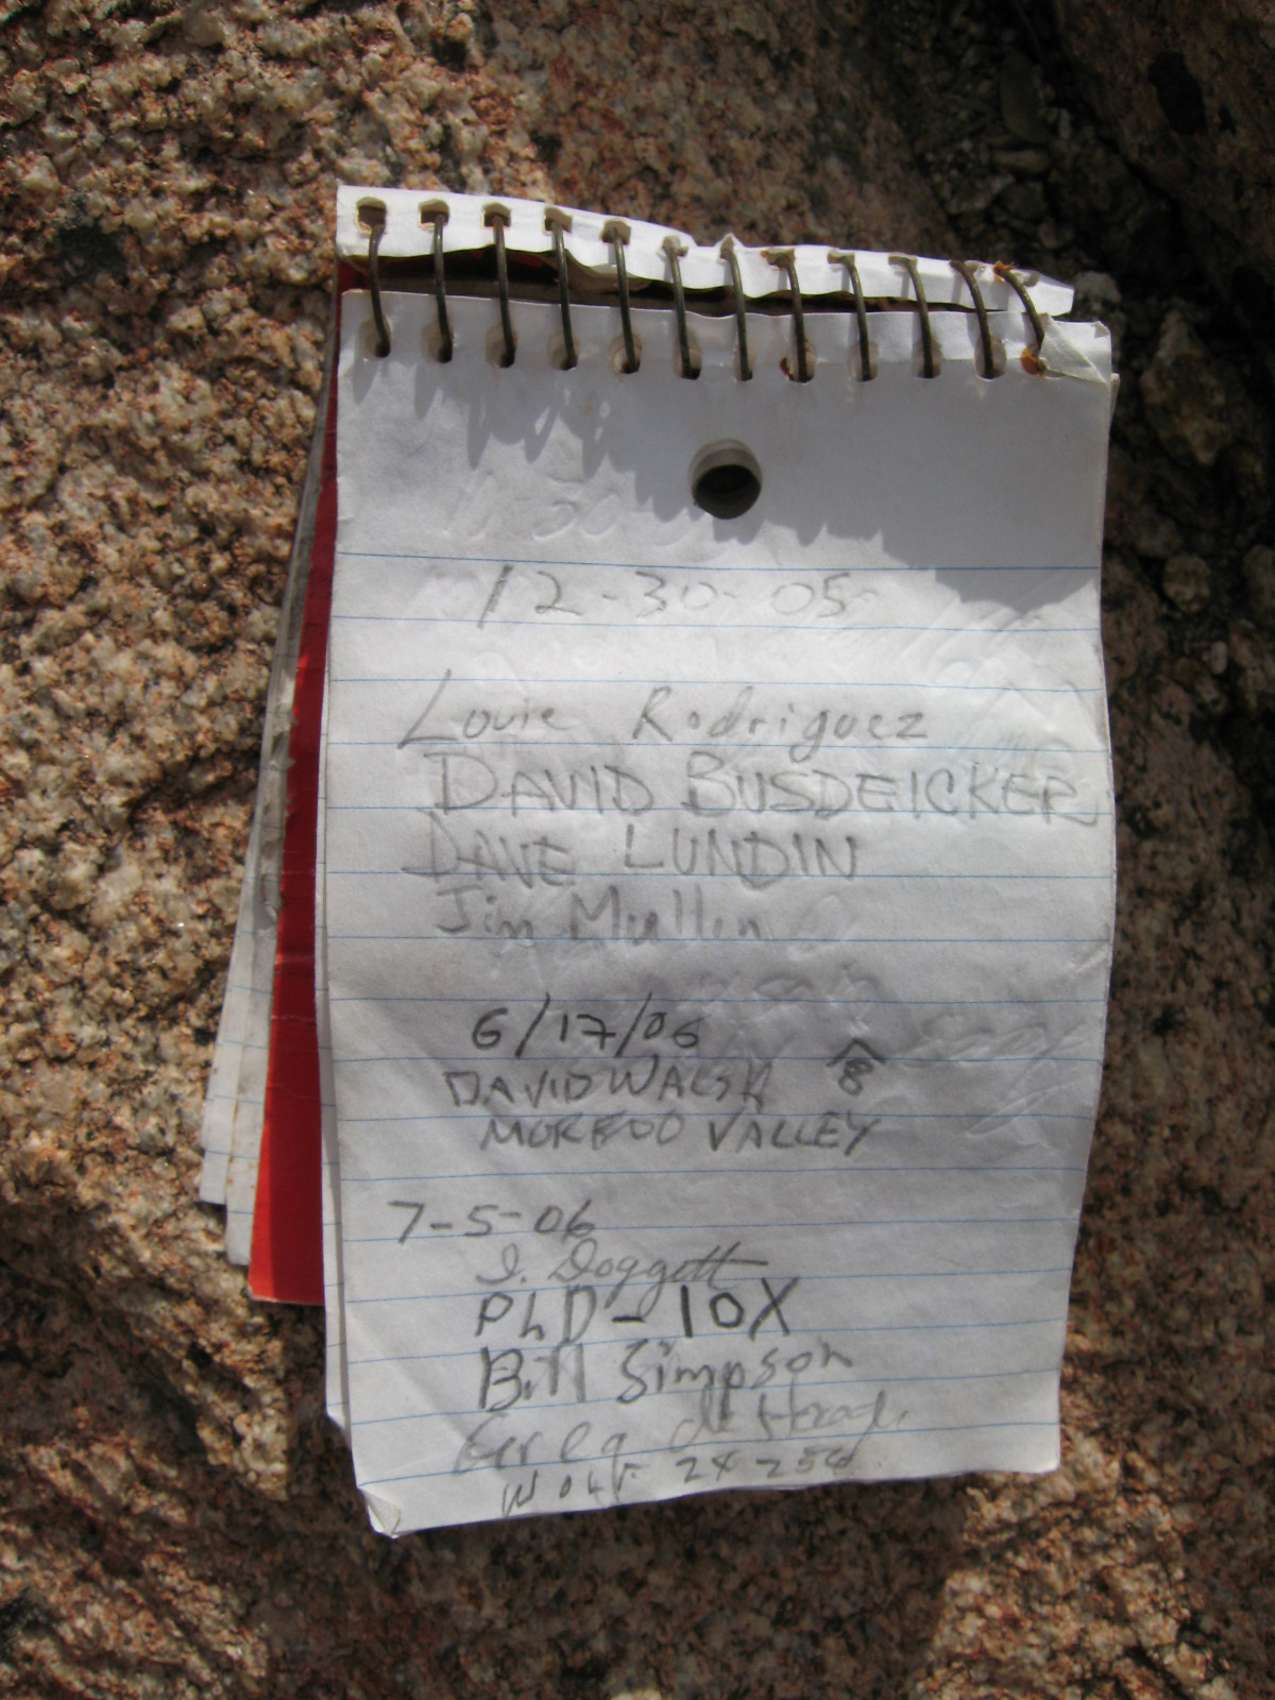 12-30-05
Louie Rodriguez
DAVID BUSDEICKER
DAVE LUNDIN
Jim Mullin
6/17/06
DAVID WALSH 8
VALLEY
7-5-06
I. Doggett
PLD-10X
Bill Simpson
Greg